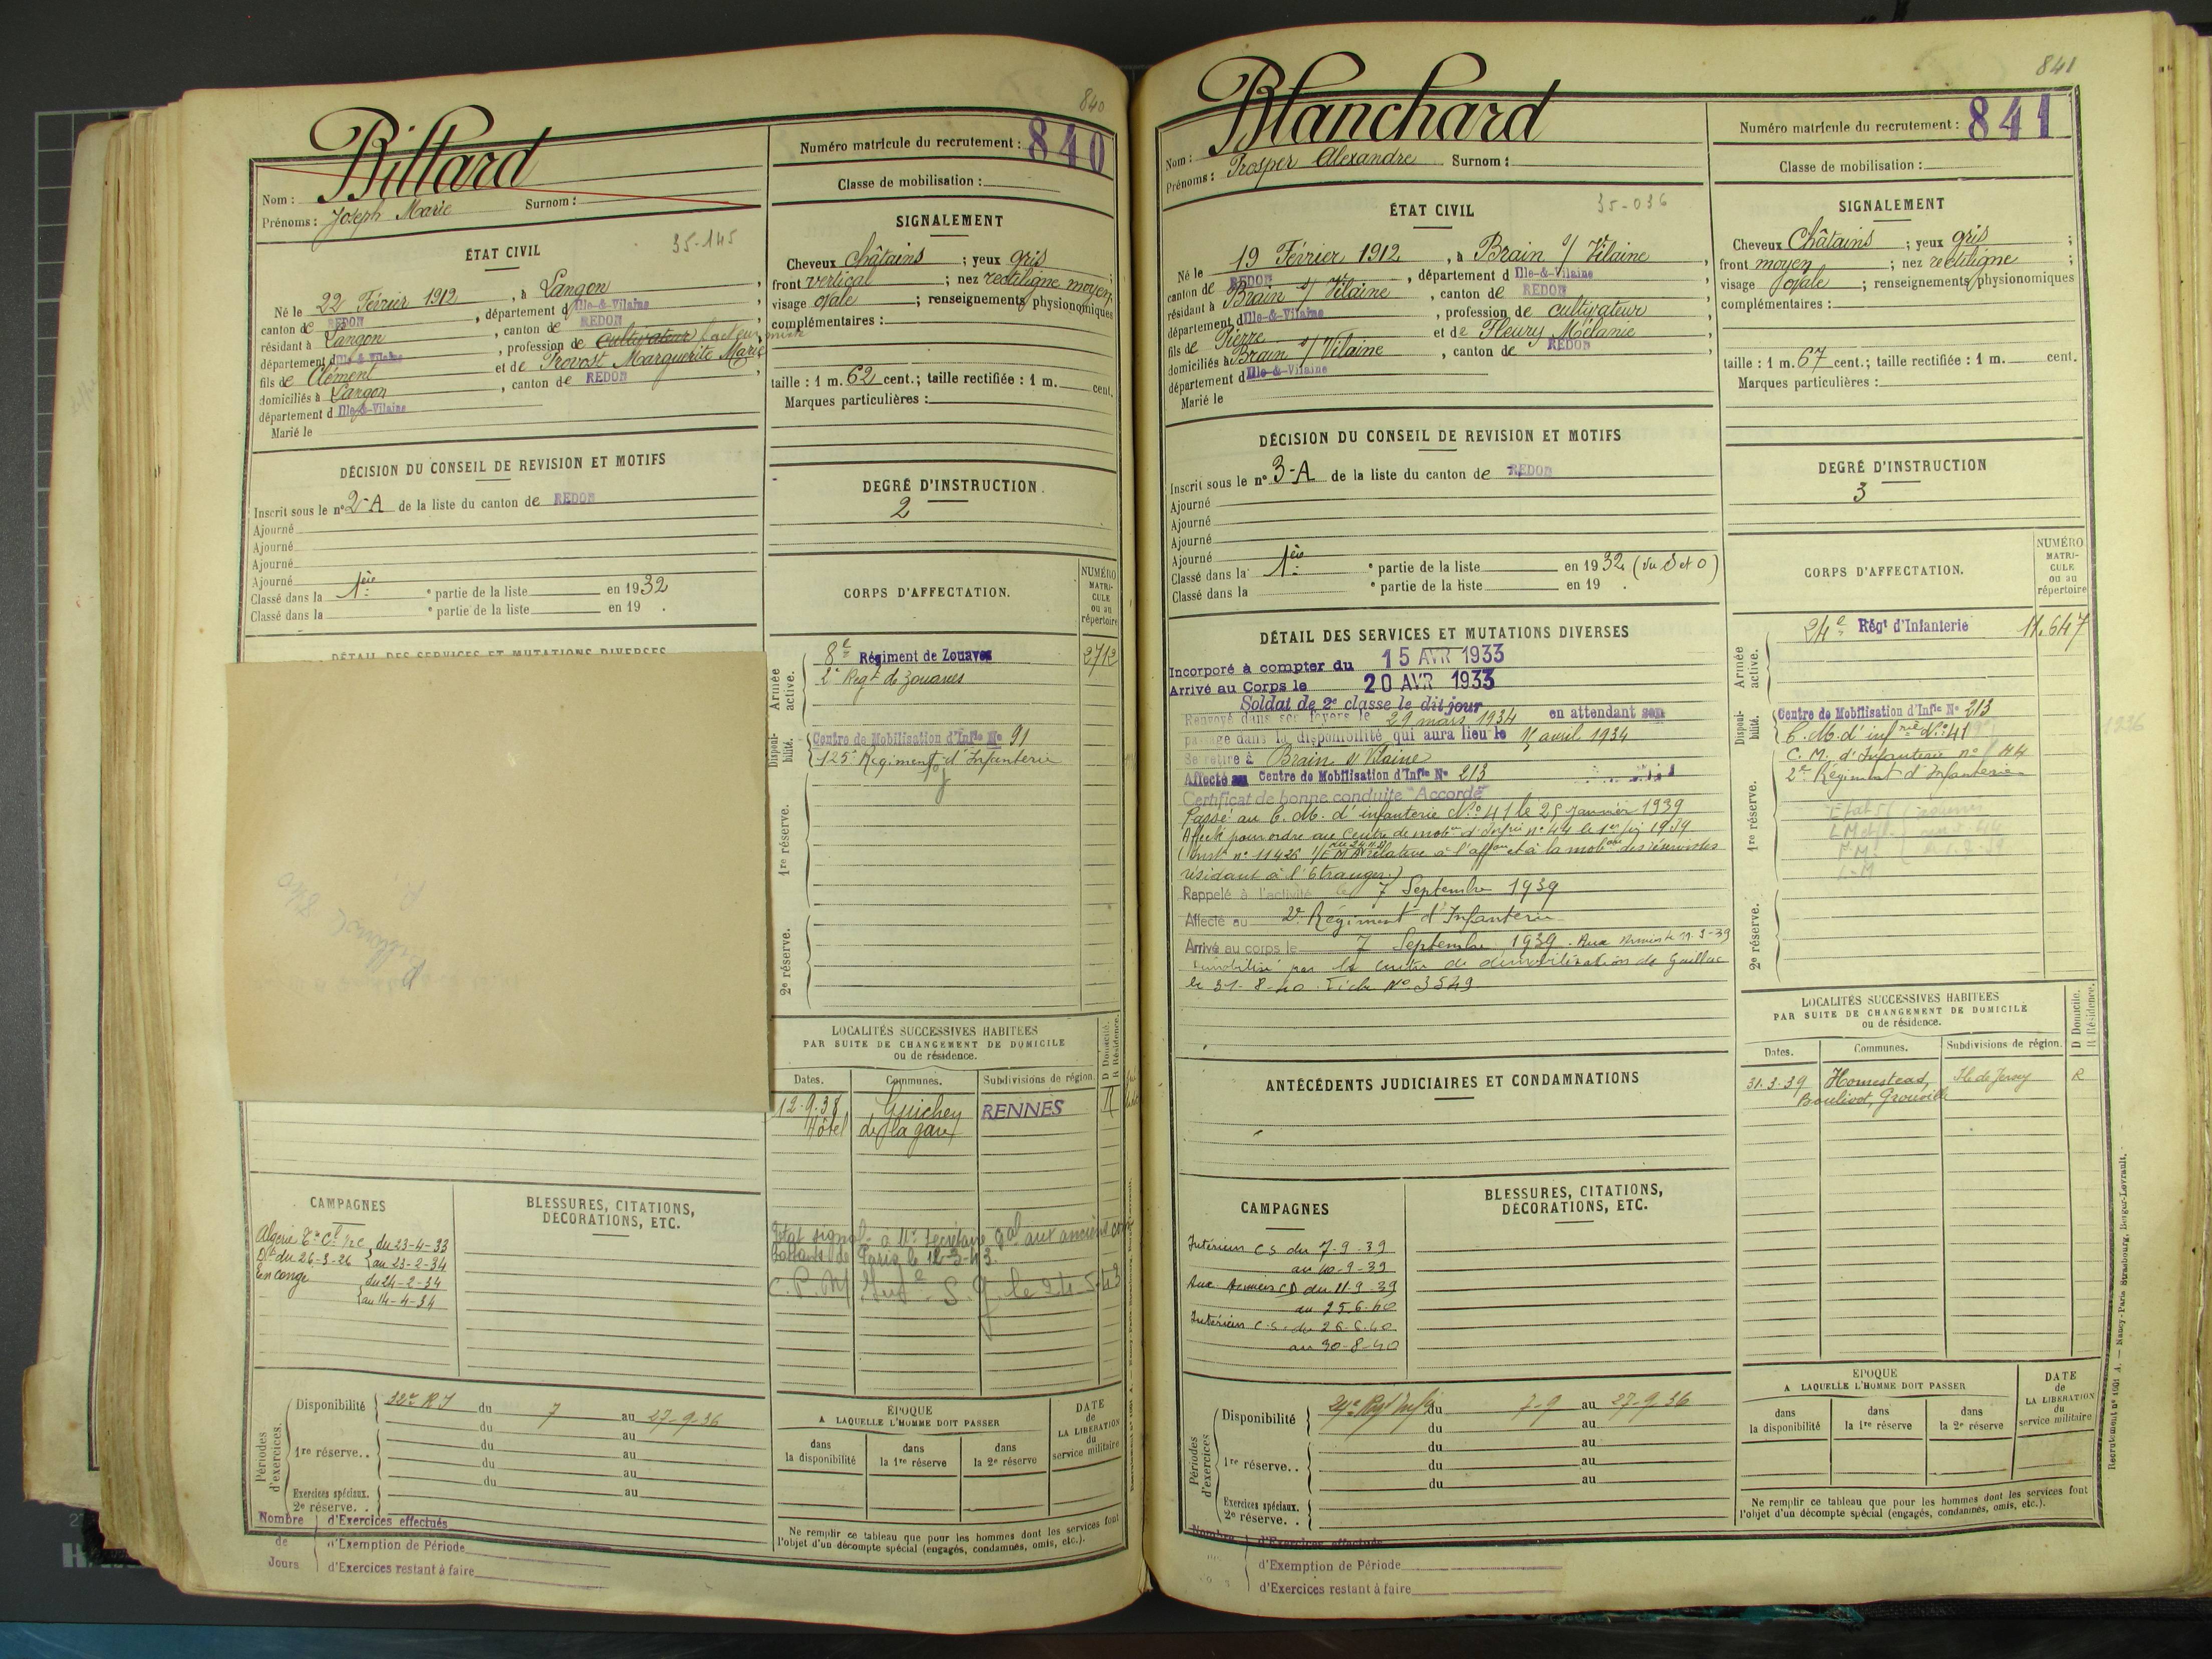 840
Billard
Nom :
Prénoms : Joseph Marie Surnom :
Numéro matricule du recrutement : 840
Classe de mobilisation :
ÉTAT CIVIL 35-145
Né le 22 Février 1912, à Langon,
canton de REDON, département d Ille-&-Vilaine,
résidant à Langon, canton de REDON,
département d Ille-&-Vilaine, profession de cultivateur
fils de Clément et de Provost Marguerite Marie
domiciliés à Langon, canton de REDON,
département d Ille-&-Vilaine
Marié le
SIGNALEMENT
Cheveux châtains ; yeux gris ;
front vertical ; nez rectiligne moyen ;
visage ovale ; renseignements physionomiques
complémentaires :
taille : 1 m. 62 cent.; taille rectifiée : 1 m. cent.
Marques particulières :
DÉCISION DU CONSEIL DE REVISION ET MOTIFS
Inscrit sous le n° 2-A de la liste du canton de REDON
Ajourné
Ajourné
Ajourné
Ajourné
Classé dans la 1ère ° partie de la liste en 1932
Classé dans la ° partie de la liste en 19 .
DEGRÉ D'INSTRUCTION.
2
DÉTAIL DES SERVICES ET MUTATIONS DIVERSES
CORPS D'AFFECTATION.
NUMÉRO MATRI-CULE ou au répertoire
Armée active.
8e Régiment de Zouaves 2712
2e Regt de Zouaves
Disponi-bilité.
Centre de Mobilisation d'Infie No 91
125e Régiment d'Infanterie
1re réserve.
2e réserve.
LOCALITÉS SUCCESSIVES HABITÉES
PAR SUITE DE CHANGEMENT DE DOMICILE
ou de résidence.
D Domicile. R Résidence.
Dates. Communes. Subdivisions de région.
12-9-38 Guichen RENNES R
Hôtel de la gare
CAMPAGNES
du 23-4-33
Dt du 26-3-26 au 23-2-34
En congé du 24-2-34
au 14-4-34
BLESSURES, CITATIONS,
DÉCORATIONS, ETC.
Etat signal. à Mr Secrétaire Gal aux anciens com
battants de Paris le 12-3-43.
Périodes d'exercices.
Disponibilité du 7 au 27-9-36
du au
1re réserve.. du au
du au
du au
Exercices spéciaux.
2e réserve. .
Nombre de Jours
d'Exercices effectués
d'Exemption de Période
d'Exercices restant à faire
ÉPOQUE
A LAQUELLE L'HOMME DOIT PASSER
DATE de LA LIBÉRATION du service militaire
dans la disponibilité
dans la 1re réserve
dans la 2e réserve
Ne remplir ce tableau que pour les hommes dont les services font
l'objet d'un décompte spécial (engagés, condamnés, omis, etc.).
841
Blanchard
Nom :
Prénoms : Prosper Alexandre Surnom :
Numéro matricule du recrutement : 841
Classe de mobilisation :
ÉTAT CIVIL 35-036
Né le 19 Février 1912, à Brain s/ Vilaine,
canton de REDON, département d Ille-&-Vilaine
résidant à Brain s/ Vilaine, canton de REDON
département d Ille-&-Vilaine, profession de cultivateur
fils de Pierre et de Fleury Mélanie
domiciliés à Brain s/ Vilaine, canton de REDON
département d Ille-&-Vilaine
Marié le
SIGNALEMENT
Cheveux Châtains ; yeux gris ;
front moyen ; nez rectiligne ;
visage ovale ; renseignements physionomiques
complémentaires :
taille : 1 m. 67 cent.; taille rectifiée : 1 m. cent.
Marques particulières :
DÉCISION DU CONSEIL DE REVISION ET MOTIFS
Inscrit sous le n° 3-A de la liste du canton de REDON
Ajourné
Ajourné
Ajourné
Ajourné
Classé dans la 1ère ° partie de la liste en 1932 (vu S et O)
Classé dans la ° partie de la liste en 19 .
DEGRÉ D'INSTRUCTION
3
DÉTAIL DES SERVICES ET MUTATIONS DIVERSES
Incorporé à compter du 15 AVR 1933
Arrivé au Corps le 20 AVR 1933
Soldat de 2e classe le dit jour
Renvoyé dans ses foyers le 29 mars 1934 en attendant son
passage dans la disponibilité qui aura lieu le 15 avril 1934
Se retire à Brain s/ Vilaine
Affecté au Centre de Mobilisation d'Infie No 213
Certificat de bonne conduite "Accordé"
Passé au C. M. d'infanterie No 41 le 25 Janvier 1939
Affecté pour ordre au Centre de mobon d'Infrie n° 44 le 1er 1939
(Inst. n° 11426 1/EMA relative à l'affon et à la mobon des réservistes
résidant à l'Etranger.)
Rappelé à l'activité le 7 Septembre 1939
Affecté au 2e Régiment d'Infanterie
Arrivé au corps le 7 Septembre 1939. Aux Armées le 11-9-39
par le centre de démobilisation de Gaillac
le 31-8-40. Fiche No 3549
CORPS D'AFFECTATION.
NUMÉRO MATRI-CULE ou au répertoire
Armée active.
24e Régt d'Infanterie 11.647
Disponi-bilité.
Centre de Mobilisation d'Infie No 213
C. M. d'infrie No 41
C. M. d'Infanterie no 44
2e Régiment d'Infanterie
1re réserve.
2e réserve.
ANTÉCÉDENTS JUDICIAIRES ET CONDAMNATIONS
LOCALITÉS SUCCESSIVES HABITÉES
PAR SUITE DE CHANGEMENT DE DOMICILE
ou de résidence.
D Domicile. R Résidence.
Dates. Communes. Subdivisions de région.
31.3.39 Homestead, Ile de Jersey R
Boulivot, Grouville
CAMPAGNES
Intérieur C S du 7-9-39
au 10-9-39
Aux Armées CD du 11-9-39
au 25-6-40
Intérieur C.S. du 26-6-40
au 30-8-40
BLESSURES, CITATIONS,
DÉCORATIONS, ETC.
Périodes d'exercices
Disponibilité du 7-9 au 27-9-36
du au
du au
1re réserve.. du au
du au
Exercices spéciaux.
2e réserve. .
Nombre
d'Exercices effectués
d'Exemption de Période
d'Exercices restant à faire
ÉPOQUE
A LAQUELLE L'HOMME DOIT PASSER
DATE de LA LIBÉRATION du service militaire
dans la disponibilité
dans la 1re réserve
dans la 2e réserve
Ne remplir ce tableau que pour les hommes dont les services font
l'objet d'un décompte spécial (engagés, condamnés, omis, etc.).
Recrutement n° 1001 A. — Nancy-Paris-Strasbourg, Berger-Levrault.